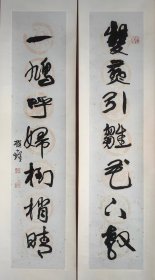 雙燕引雛花下教
一鳩呼婦樹梢晴